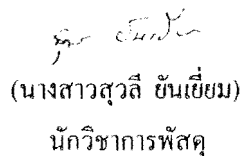 (นางสาวสุวลี ยันเยี่ยม)
นักวิชาการพัสดุ